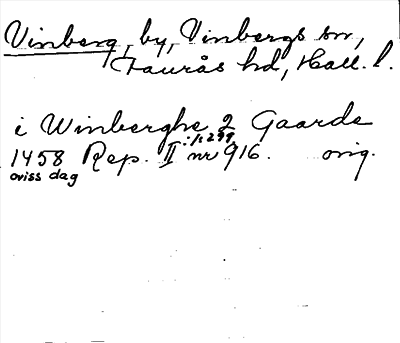 Vinberg, by, Vinbergs sn,
Faurås hd, Hall. l.
i Winberghe 2 Gaarde
1458 Rep. II :1:299, nr 916. orig.
oviss dag